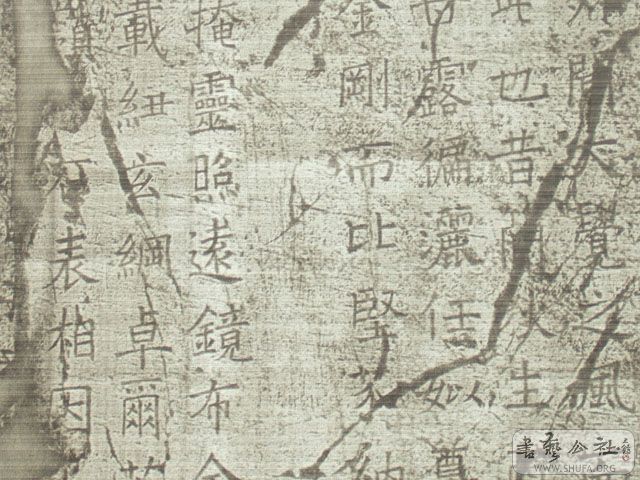 聞大覺之風
也昔生
露徧灑任如
金剛而比堅芥
掩靈照遠鏡布金
載紐玄綱卓爾
行表相因
書藝公社
WWW.SHUFA.ORG